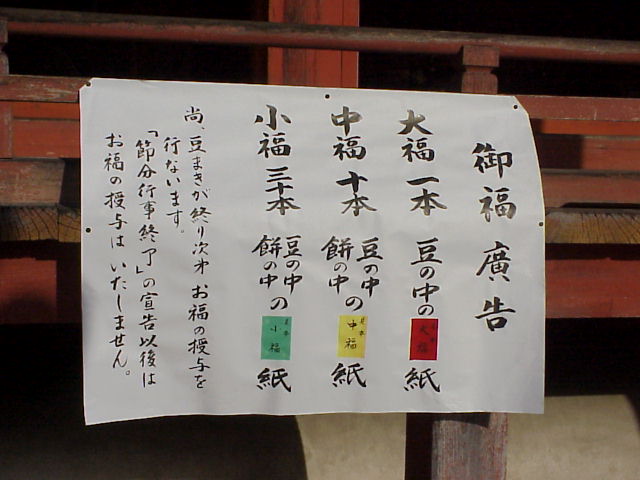 御福廣告
大福 一本 豆の中の 見本 大福 紙
中福 十本 豆の中 餅の中の 見本 中福 紙
小福 三十本 豆の中 餅の中の 見本 小福 紙
尚、豆まきが終り次才 お福の授与を
行ないます。
「節分行事終了」の宣告以後は
お福の授与は いたしません。